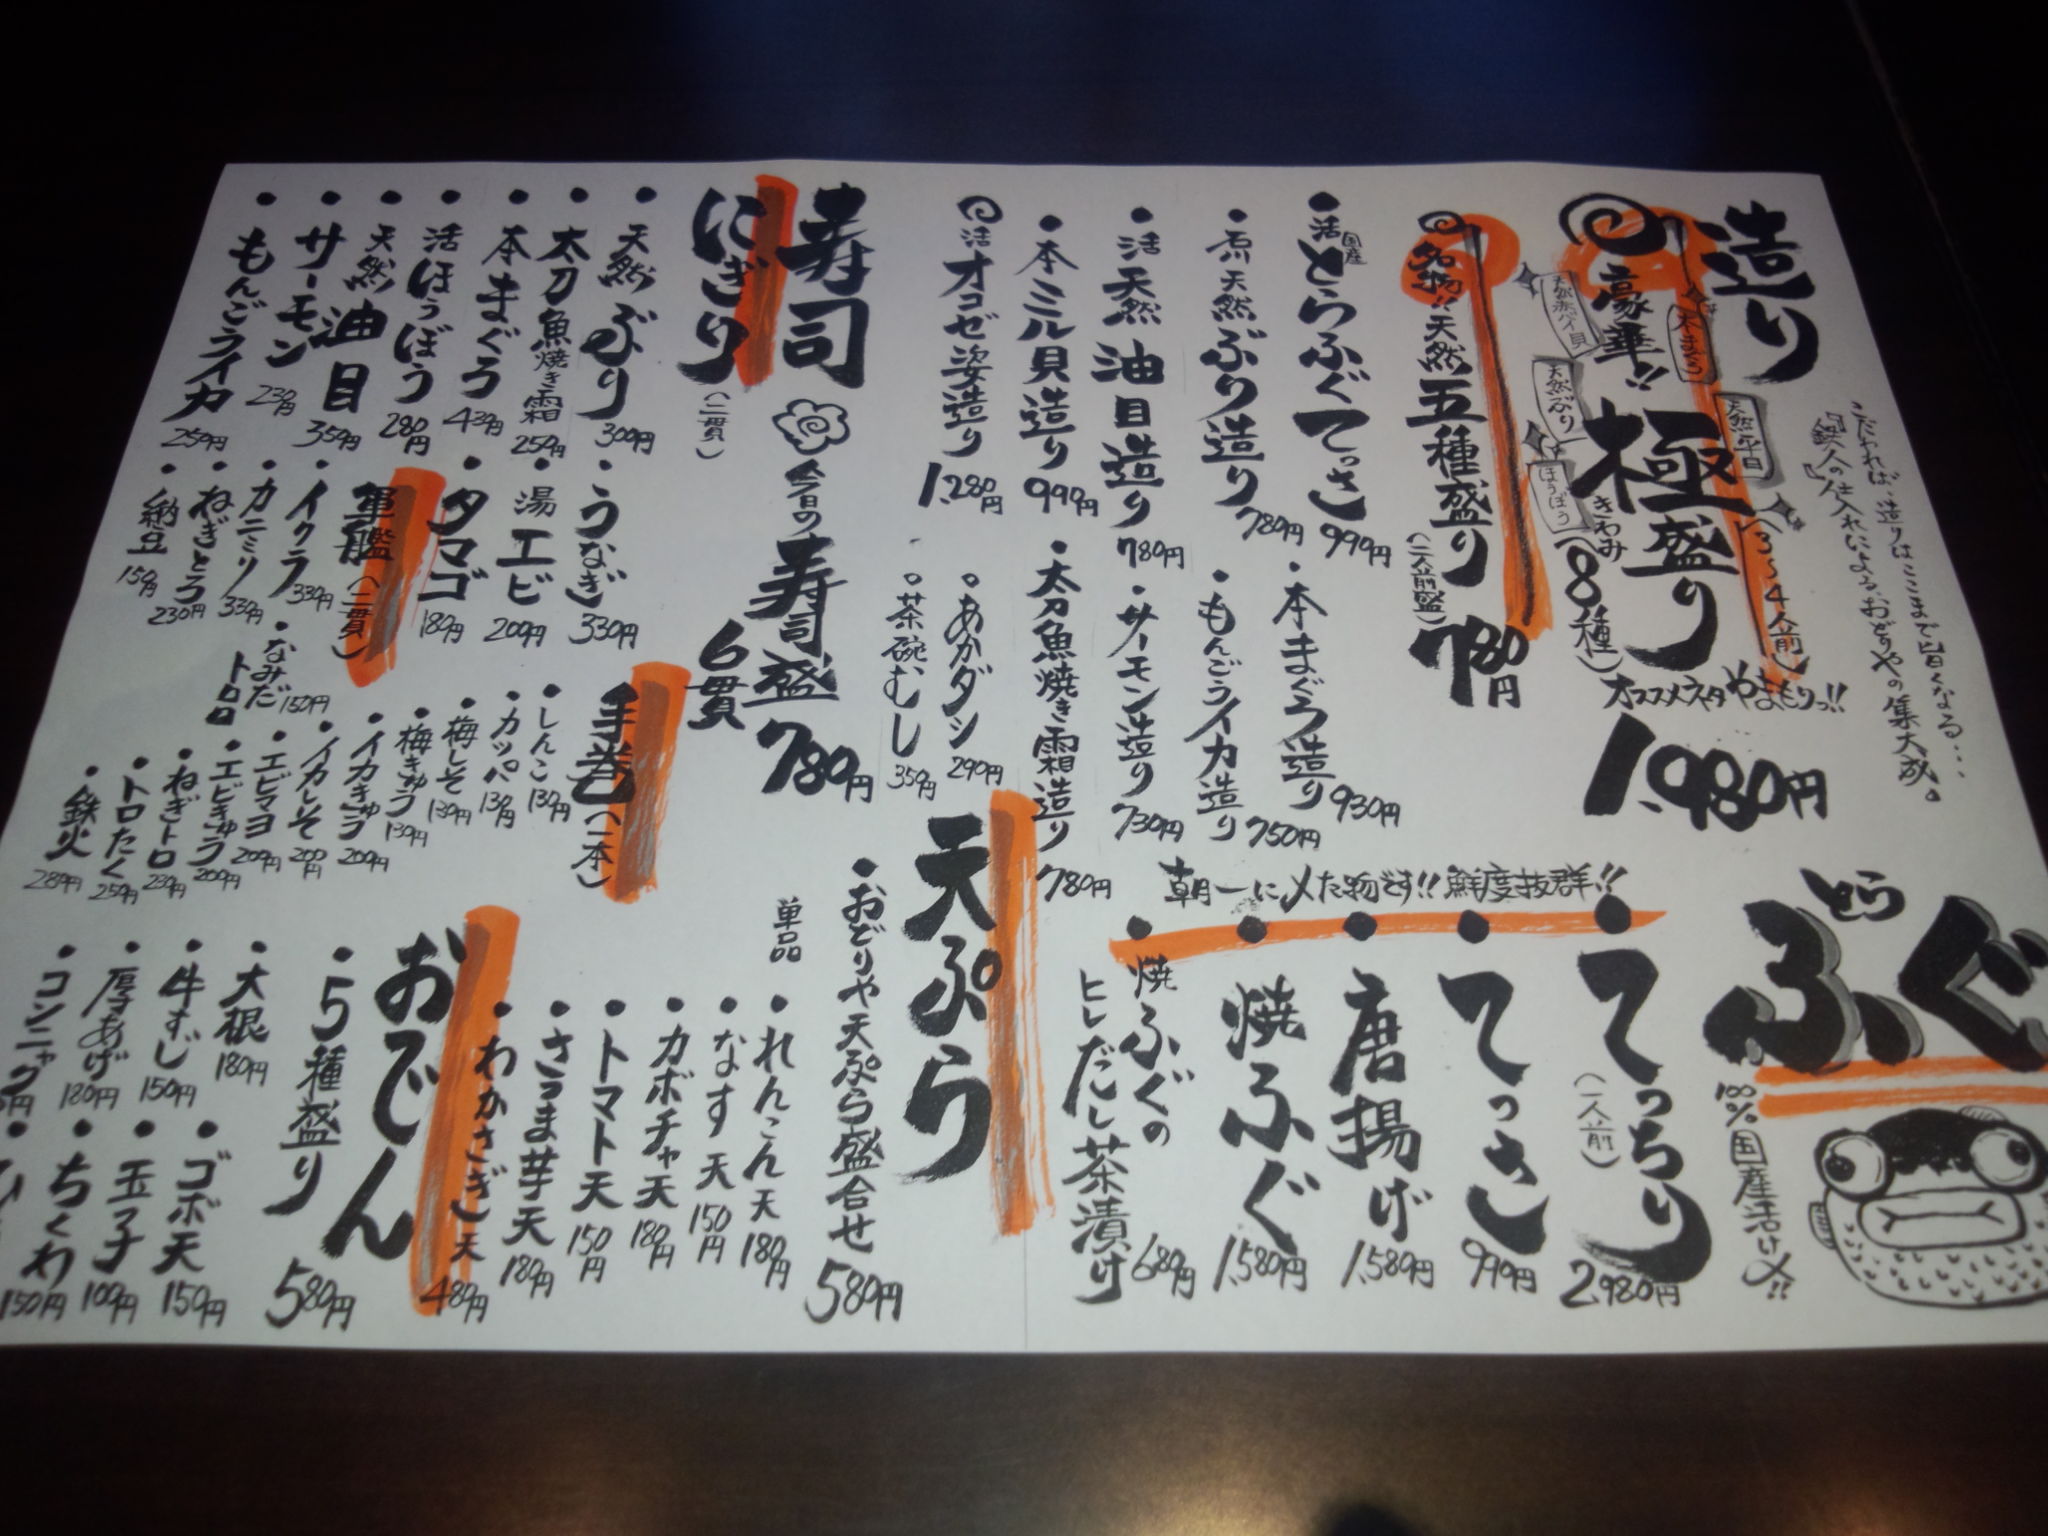 造り
こだわれば、造りはここまで旨くなる…
『鉄人の仕入れ』による、おどりやの集大成。
豪華!! 極盛り (8種)
きわみ
(3～4人前)
本まぐろ
天然平目
天然ぶり
ほうぼう
オススメネタやまもりっ!!
1,980円
名物!! 天然五種盛り 780円
(二人前盛)
・活 国産 とらふぐてっさ 990円
天然ぶり造り 780円
・活 天然油目造り 780円
・本ミル貝造り 990円
活 オコゼ姿造り 1,280円
・本まぐろ造り 930円
・もんごうイカ造り 750円
・サーモン造り 730円
・太刀魚焼き霜造り 780円
・あかダシ 290円
・茶碗むし 350円
とらふぐ
100%国産活け〆!!
朝一に〆た物です!! 鮮度抜群!!
・てっちり (一人前) 2,980円
・てっさ 990円
・唐揚げ 1,580円
・焼ふぐ 1,580円
・焼ふぐのヒレだし茶漬け 680円
寿司
今日の寿司盛 6貫 780円
にぎり (二貫)
・天然ぶり 300円
・太刀魚焼き霜 250円
・本まぐろ 430円
・活ほうぼう 280円
・天然油目 350円
・サーモン 230円
・もんごうイカ 250円
・うなぎ 330円
・湯エビ 200円
・タマゴ 180円
軍艦 (二貫)
・イクラ 330円
・カニミソ 330円
・ねぎとろ 230円
・納豆 150円
手巻 (一本)
・しんこ 130円
・カッパ 130円
・梅しそ 130円
・梅きゅう 130円
・イカきゅう 200円
・イカしそ 200円
・エビマヨ 200円
・エビきゅう 200円
・ねぎトロ 230円
・トロたく 250円
・鉄火 280円
・なみだ 150円
トロロ
天ぷら
・おどりや天ぷら盛合せ 580円
単品
・れんこん天 180円
・なす天 150円
・カボチャ天 180円
・トマト天 150円
・さつま芋天 180円
・わかさぎ天 480円
おでん
・5種盛り 580円
・大根 180円
・牛すじ 150円
・厚あげ 180円
・コンニャク
・ゴボ天 150円
・玉子 100円
・ちくわ 150円